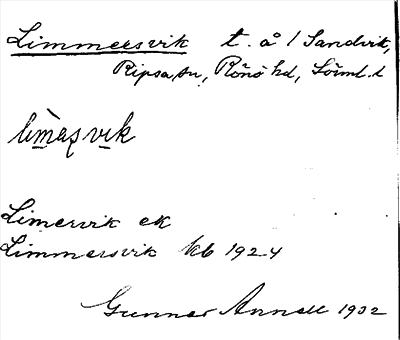 Limmersvik t. å / Sandvik,
Ripsa sn, Rönö hd, Sörml. l
Limervik ek
Limmersvik kb 1924
Gunnar Annell 1932